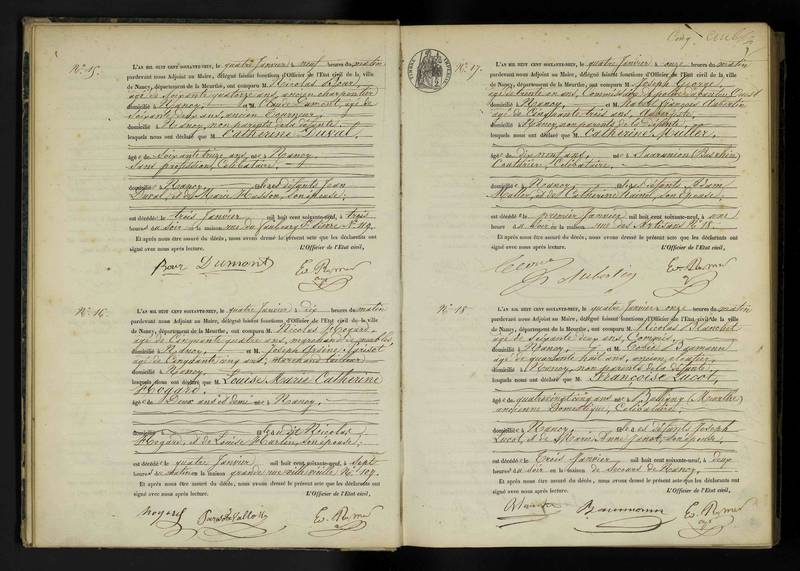 N° 15.
L'AN MIL HUIT CENT SOIXANTE-NEUF, le quatre Janvier à neuf heures du matin
pardevant nous Adjoint au Maire, délégué faisant fonctions d'Officier de l'Etat civil de la ville
de Nancy, département de la Meurthe, ont comparu M. Nicolas
âgé de soixante quatorze ans, ancien charpentier
domicilié à Nancy, et M. Claude Dumont, âgé de
soixante ans, ancien
domicilié à Nancy, non parents de la défunte
lesquels nous ont déclaré que M. Catherine Duval,
âgée de soixante onze ans, née à Nancy,
sans profession, Célibataire,
domiciliée à Nancy, fille des défunts Jean
Duval, et de Marie Masson, son épouse;
est décédée le trois Janvier mil huit cent soixante-neuf, à trois
heures du soir en la maison rue du faubourg St Pierre N° 119.
Et après nous être assuré du décès, nous avons dressé le présent acte que les déclarants ont
signé avec nous après lecture. L'Officier de l'Etat civil,
Dumont
N° 16.
L'AN MIL HUIT CENT SOIXANTE-NEUF, le quatre Janvier à dix heures du matin
pardevant nous Adjoint au Maire, délégué faisant fonctions d'Officier de l'Etat civil de la ville
de Nancy, département de la Meurthe, ont comparu M. Nicolas Hogard,
âgé de Cinquante quatre ans, marchand de meubles,
domicilié à Nancy, et M. Joseph Arsène
âgé de Cinquante cinq ans, Marchand tailleur
domicilié à Nancy,
lesquels nous ont déclaré que M. Louise Marie Catherine
Hogard,
âgée de Deux ans et demi née à Nancy,
domiciliée à fille du dit Nicolas
Hogard, et de Louise Martin, son épouse;
est décédée le quatre Janvier mil huit cent soixante-neuf, à sept
heures du matin en la maison grande rue ville vieille N° 107.
Et après nous être assuré du décès, nous avons dressé le présent acte que les déclarants ont
signé avec nous après lecture. L'Officier de l'Etat civil,
Hogard
Cinq
N° 17.
L'AN MIL HUIT CENT SOIXANTE-NEUF, le quatre Janvier à onze heures du matin
pardevant nous Adjoint au Maire, délégué faisant fonctions d'Officier de l'Etat civil de la ville
de Nancy, département de la Meurthe, ont comparu M. Joseph George,
âgé de trente ans, Commis
domicilié à Nancy, et M. François Aubertin
âgé de Cinquante trois ans, Aubergiste,
domicilié à Nancy, non parents de la défunte
lesquels nous ont déclaré que M. Catherine Muller,
âgée de Dix neuf ans, née à
Célibataire,
domiciliée à Nancy, fille des défunts Adam
Muller, et de Catherine son épouse;
est décédée le premier Janvier mil huit cent soixante-neuf, à une
heure du soir en la maison rue des Artisans N° 18.
Et après nous être assuré du décès, nous avons dressé le présent acte que les déclarants ont
signé avec nous après lecture. L'Officier de l'Etat civil,
Aubertin
N° 18
L'AN MIL HUIT CENT SOIXANTE-NEUF, le quatre Janvier à onze heures du matin
pardevant nous Adjoint au Maire, délégué faisant fonctions d'Officier de l'Etat civil de la ville
de Nancy, département de la Meurthe, ont comparu M. Nicolas Blanchet
âgé de soixante deux ans, Commis,
domicilié à Nancy, et M. Baumann
âgé de quarante huit ans, ancien
domicilié à Nancy, non parents de la défunte
lesquels nous ont déclaré que M. Françoise Lacot,
âgée de quatre vingt cinq ans née à (Meurthe)
ancienne Domestique, Célibataire,
domiciliée à Nancy, fille des défunts Joseph
Lacot, et de Marie Anne son épouse;
est décédée le trois Janvier mil huit cent soixante-neuf, à deux
heures du soir en la maison de secours de Nancy.
Et après nous être assuré du décès, nous avons dressé le présent acte que les déclarants ont
signé avec nous après lecture. L'Officier de l'Etat civil,
Baumann